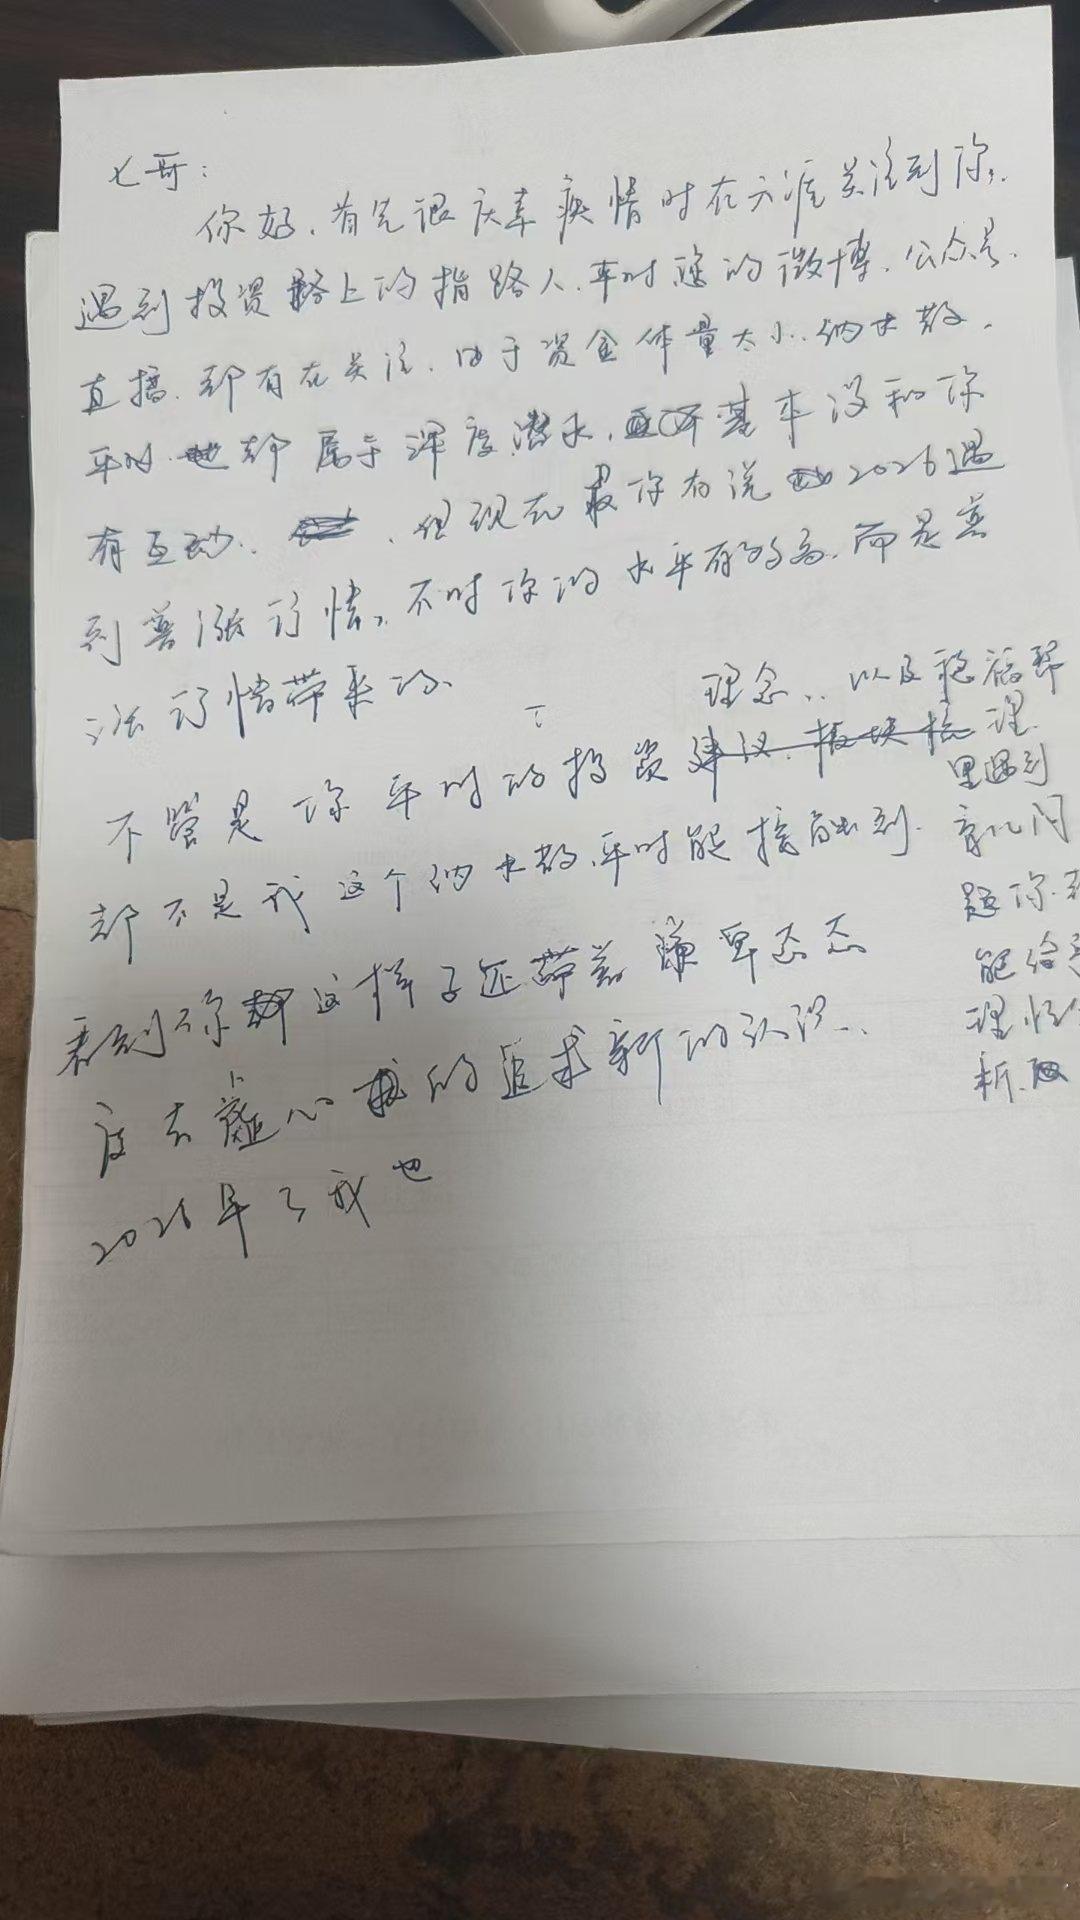 七哥：
你好，首先很庆幸疫情时在天涯关注到你，
遇到投资路上的指路人，平时您的微博，公众号，
直播，都有在关注，由于资金体量太小，纳米散，
平时都属于深度潜水，基本没和你
有互动，但现在 你有说 2026遇
到普涨行情，不时你的水平有多高，而是
行情带来的
不管是你平时的投资
理念，以及
里遇到
问
题你
能给
理性
析
都不是我这个纳米散，平时能接触到
看到你这样子还带着谦卑态
度去虚心的追求新的认识..
2026年了我也